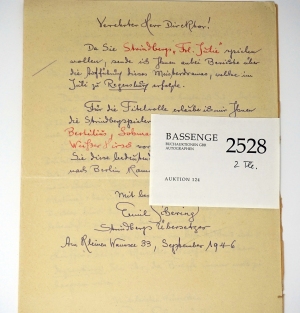 Verehrter Herr Direktor!
Da Sie Strindbergs "Frl. Julie" spielen
wollen, sende ich Ihnen anbei Berichte über
die Aufführung dieses Meisterdramas, welche im
Juli zu Regensburg erfolgte.
Für die Titelrolle erlaube ich mir Ihnen
die Strindbergspielerin
Sie diese
nach Berlin
Mit
Emil Schering
Strindbergs Übersetzer
Am Kleinen Wannsee 33, September 1946
BASSENGE
BUCHAUKTIONEN GBR
AUTOGRAPHEN
2528
2 Tle.
AUKTION 124